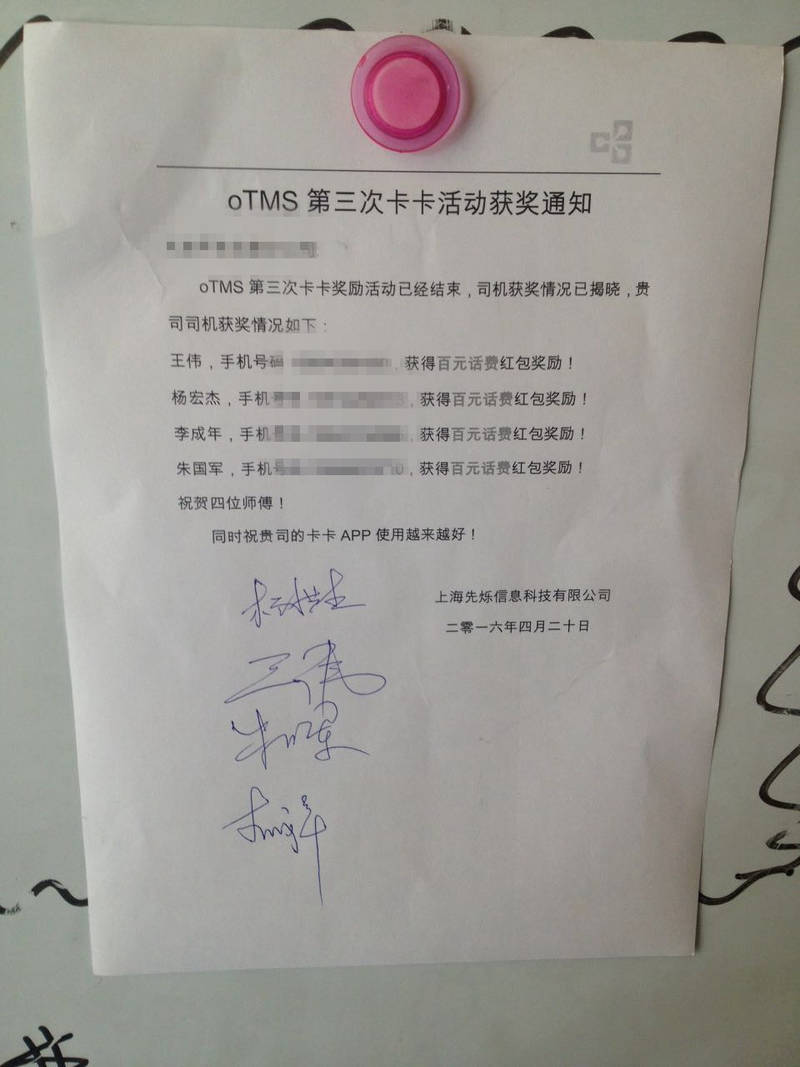 oTMS 第三次卡卡活动获奖通知
oTMS 第三次卡卡奖励活动已经结束，司机获奖情况已揭晓，贵
司司机获奖情况如下：
王伟，手机号码 获得百元话费红包奖励！
杨宏杰，手机 ，获得百元话费红包奖励！
李成年，手机 ，获得百元话费红包奖励！
朱国军，手机 ，获得百元话费红包奖励！
祝贺四位师傅！
同时祝贵司的卡卡 APP 使用越来越好！
上海先烁信息科技有限公司
二零一六年四月二十日